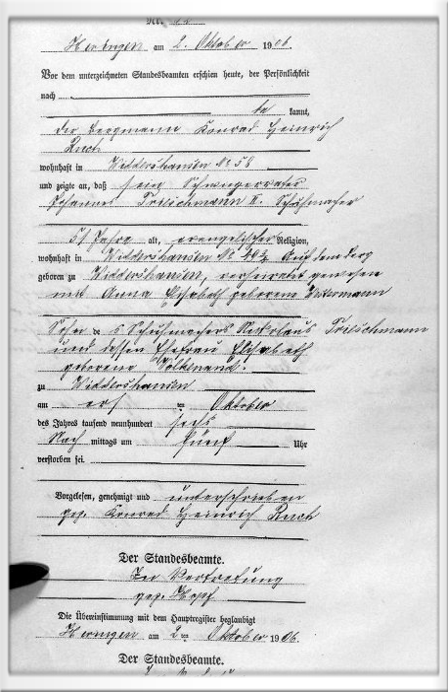 Heringen am 2. Oktober 1906.
Vor dem unterzeichneten Standesbeamten erschien heute, der Persönlichkeit
nach
be kannt,
der Bergmann Konrad Heinrich
wohnhaft in Widdershausen No 58
und zeigte an, daß sein Schwiegervater
Johannes Trieschmann II. Schuhmacher
51 Jahre alt, evangelischer Religion,
wohnhaft in Widdershausen No 49½ Auf dem Berg
geboren zu Widdershausen, verheiratet gewesen
mit Anna Elisabeth geborene
Sohn des Schuhmachers Nikolaus Trieschmann
und dessen Ehefrau Elisabeth
geborene Volkenand.
zu Widdershausen
am ersten Oktober
des Jahres tausend neunhundert sechs
Nach mittags um fünf Uhr
verstorben sei.
Vorgelesen, genehmigt und unterschrieben
gez. Konrad Heinrich
Der Standesbeamte.
In Vertretung
gez.
Die Übereinstimmung mit dem Hauptregister beglaubigt
Heringen am 2ten Oktober 1906.
Der Standesbeamte.